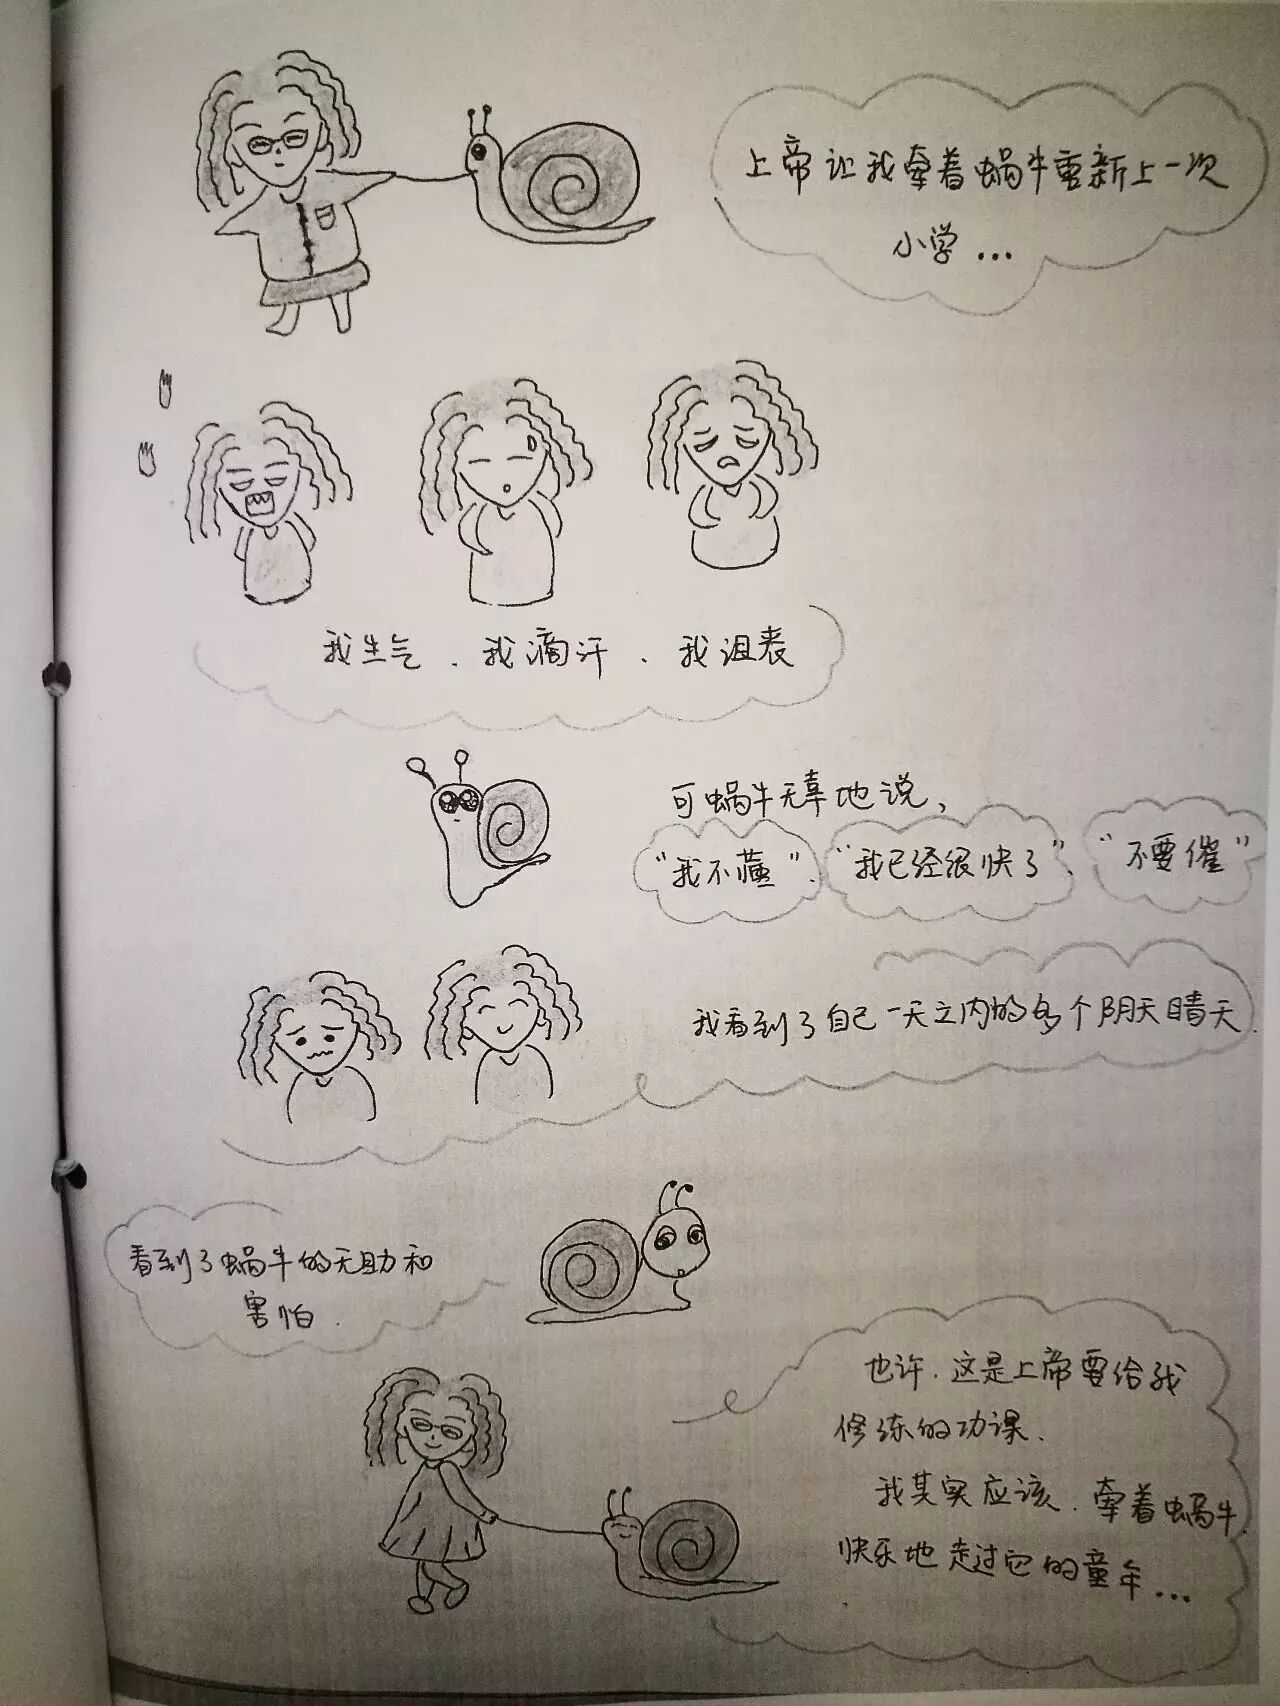 上帝让我牵着蜗牛重新上一次
小学...
我生气、我滴汗、我沮丧
可蜗牛无辜地说,
“我不懂”、“我已经很快了”、“不要催”
我看到了自己一天之内的多个阴天晴天.
看到了蜗牛的无助和
害怕.
也许.这是上帝要给我
修练的功课.
我其实应该.牵着蜗牛
快乐地走过它的童年...